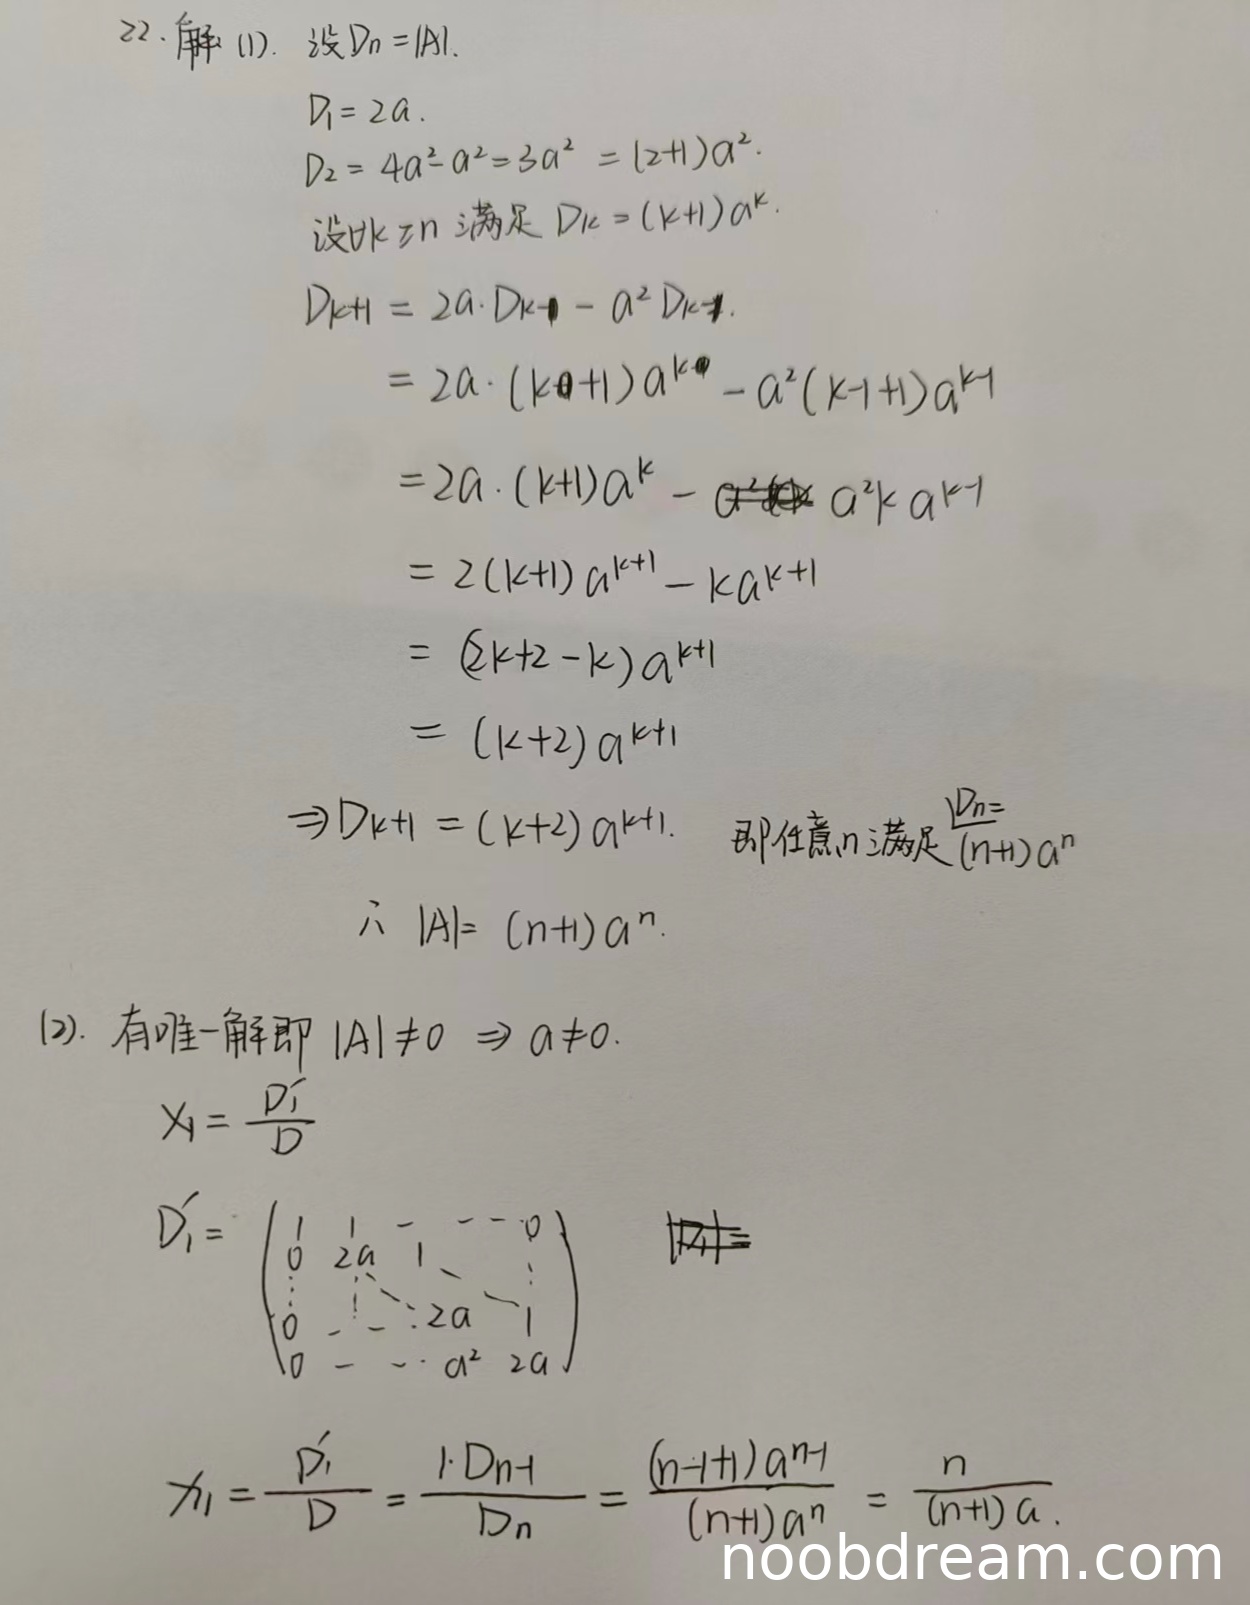 22.解 (1). 设Dn=|A|.
D₁=2a.
D₂=4a²-a²=3a² =(2+1)a².
设∀k≤n 满足 Dk=(k+1)aᵏ.
Dk+1 = 2a·Dk - a²Dk-1.
= 2a·(k+1)aᵏ - a²(k-1+1)aᵏ⁻¹
=2a·(k+1)aᵏ - a²k aᵏ⁻¹
= 2(k+1)aᵏ⁺¹ - kaᵏ⁺¹
= (2k+2-k)aᵏ⁺¹
= (k+2)aᵏ⁺¹
⇒Dk+1 = (k+2)aᵏ⁺¹. 即任意n满足 Dn=(n+1)aⁿ
∴ |A|= (n+1)aⁿ.
(2). 有唯一解即 |A|≠0 ⇒ a≠0.
x₁= D₁′/D
D₁′= ( 1 1 - - - 0
0 2a 1 ⋮
0 - - 2a 1
0 - - a² 2a )
x₁= D₁′/D = 1·Dn-1/Dn = (n-1+1)aⁿ⁻¹/(n+1)aⁿ = n/(n+1)a.
noobdream.com